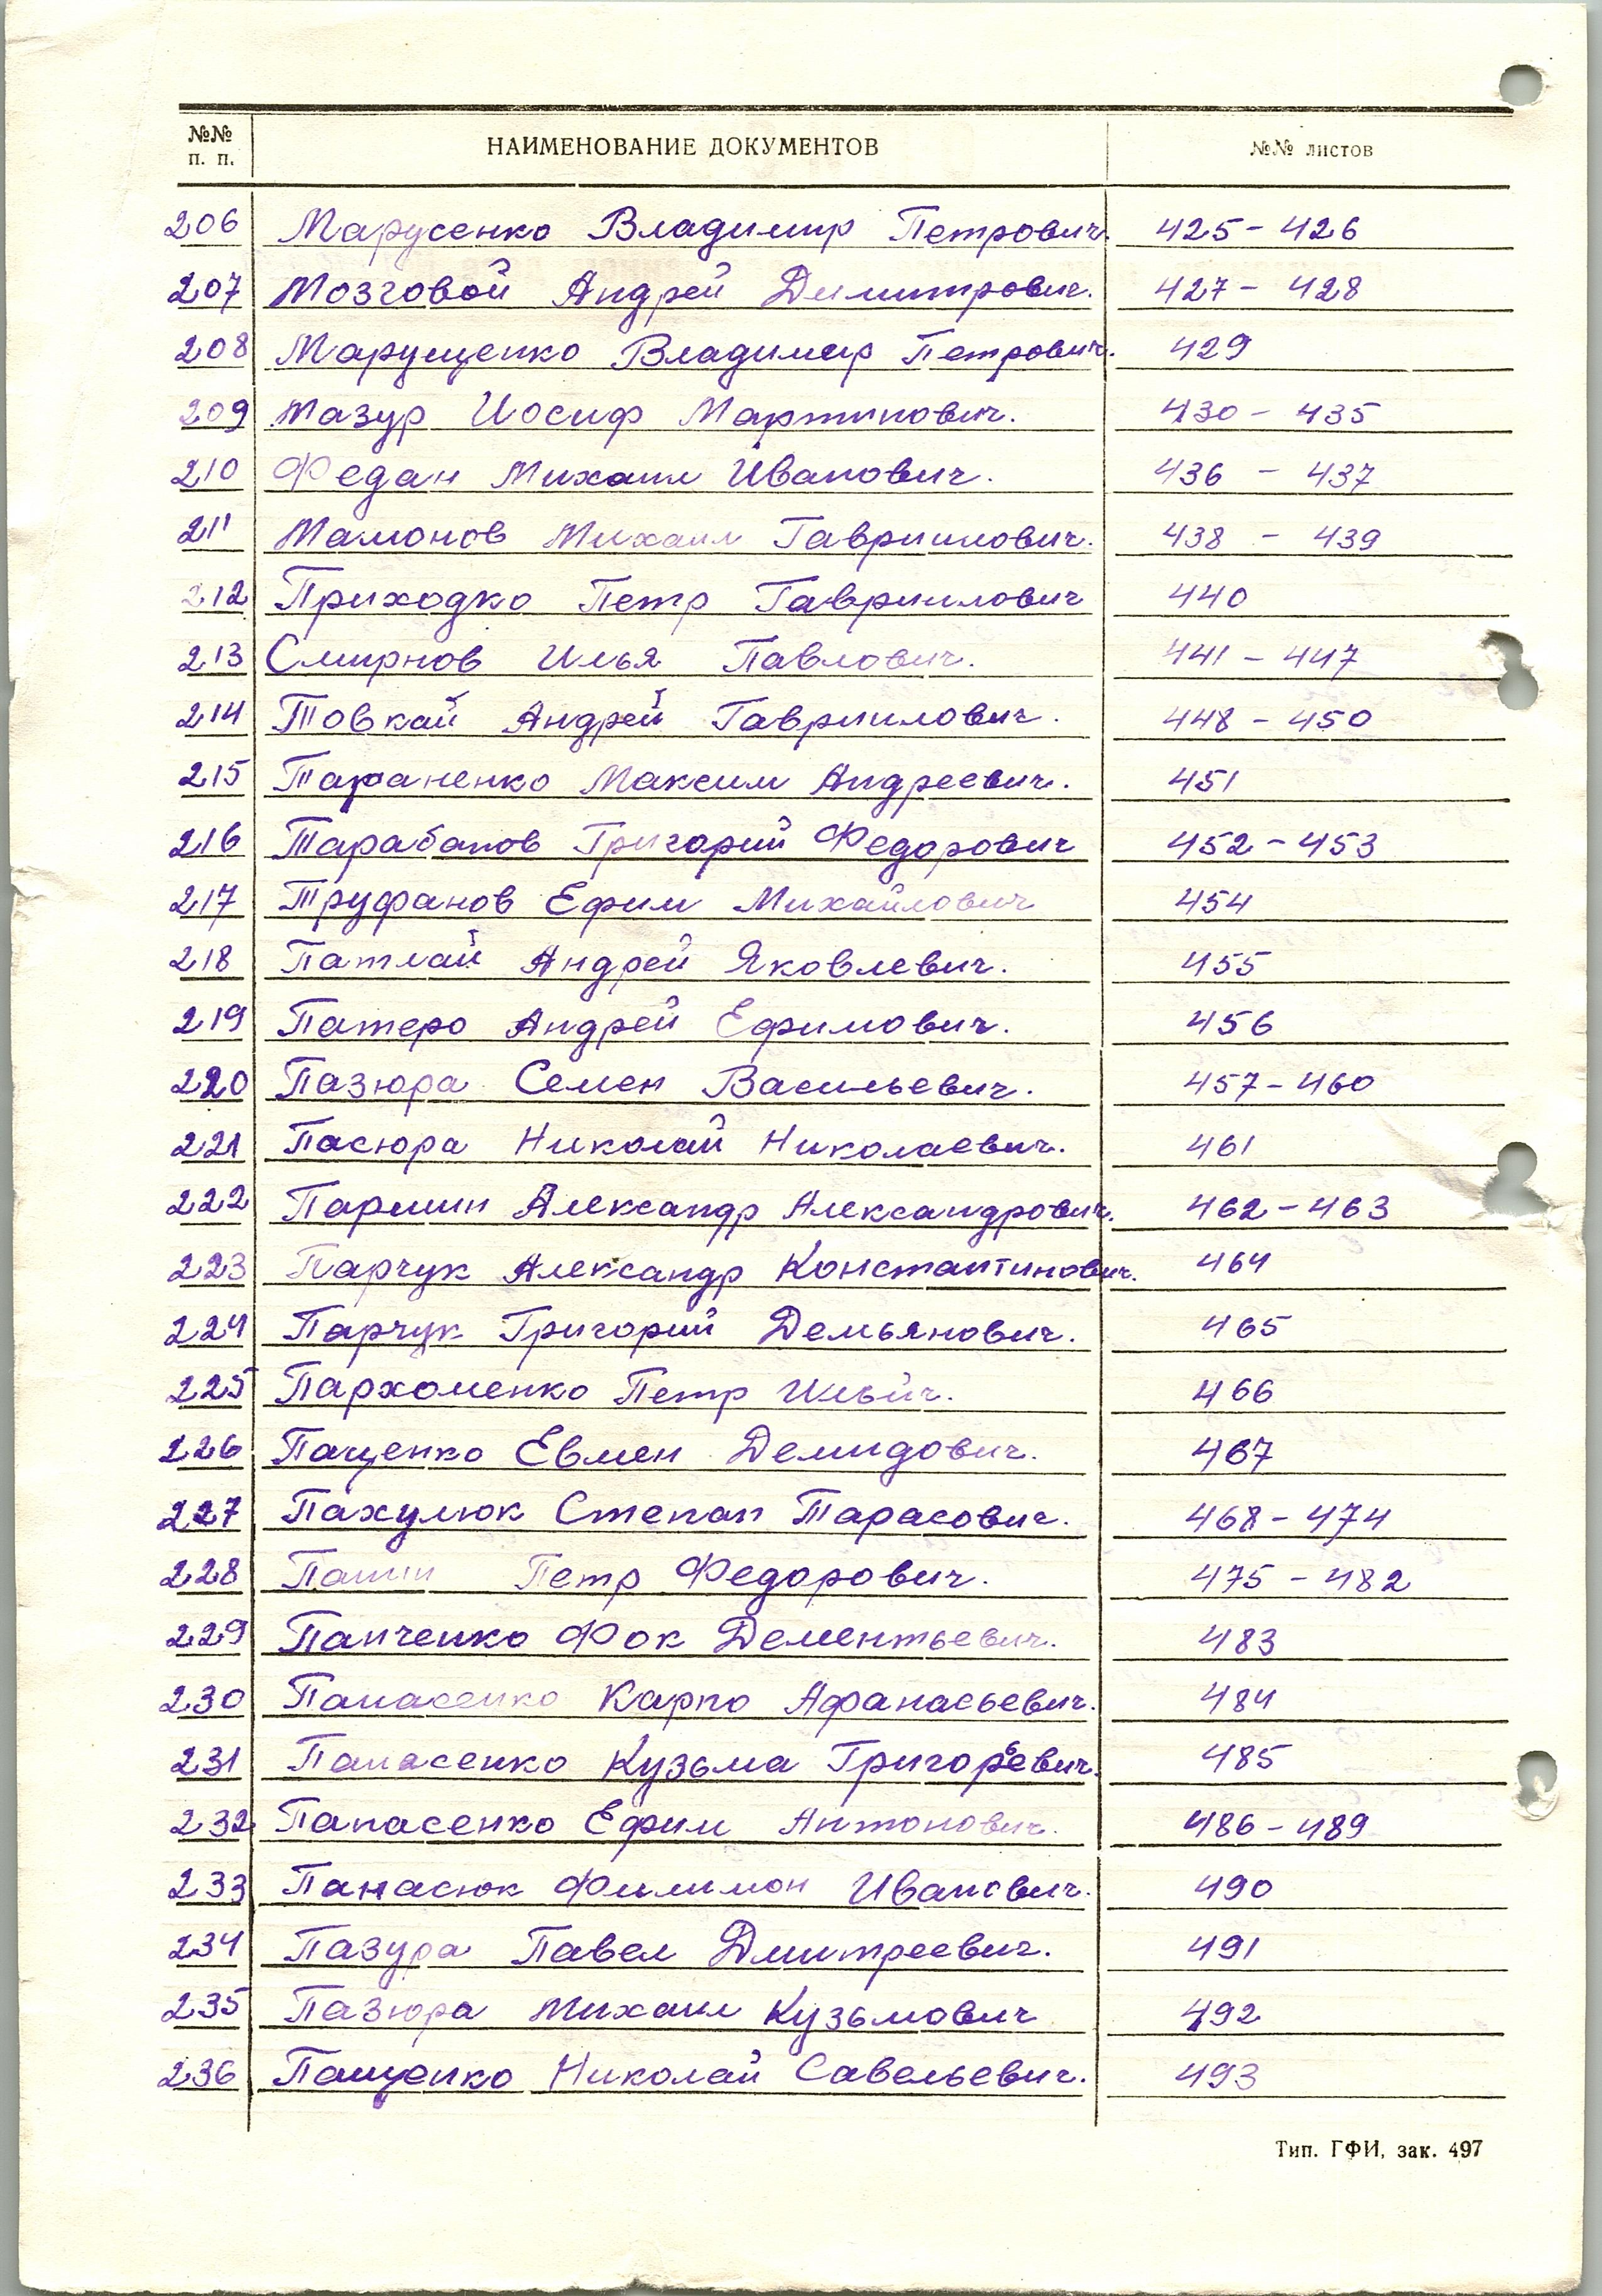 №№ п. п. НАИМЕНОВАНИЕ ДОКУМЕНТОВ №№ листов
206 Марусенко Владимир Петрович. 425-426
207 Мозговой Андрей Димитрович. 427-428
208 Марущенко Владимир Петрович. 429
209 Мазур Иосиф Мартинович. 430-435
210 Федан Михаил Иванович. 436-437
211 Мамонов Михаил Гавриилович. 438-439
212 Приходко Петр Гавриилович 440
213 Смирнов Илья Павлович. 441-447
214 Товкай Андрей Гавриилович. 448-450
215 Тараненко Максим Андреевич. 451
216 Тарабанов Григорий Федорович 452-453
217 Труфанов Ефим Михайлович 454
218 Патлай Андрей Яковлевич. 455
219 Патеро Андрей Ефимович. 456
220 Пазюра Семен Васильевич. 457-460
221 Пасюра Николай Николаевич. 461
222 Паршин Александр Александрович. 462-463
223 Парчук Александр Константинович. 464
224 Парчук Григорий Демьянович. 465
225 Пархоменко Петр Ильич. 466
226 Паценко Евмен Демидович. 467
227 Пахулюк Степан Тарасович. 468-474
228 Петр Федорович. 475-482
229 Панченко Фок Дементьевич. 483
230 Панасенко Карпо Афанасьевич. 484
231 Панасенко Кузьма Григорьевич. 485
232 Панасенко Ефим Антонович. 486-489
233 Панасюк Филимон Иванович. 490
234 Пазура Павел Дмитреевич. 491
235 Пазюра Михаил Кузьмович 492
236 Пащенко Николай Савельевич. 493
Тип. ГФИ, зак. 497